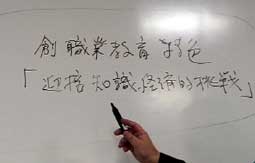 創職業教育特色
「迎接知識經濟的挑戰」